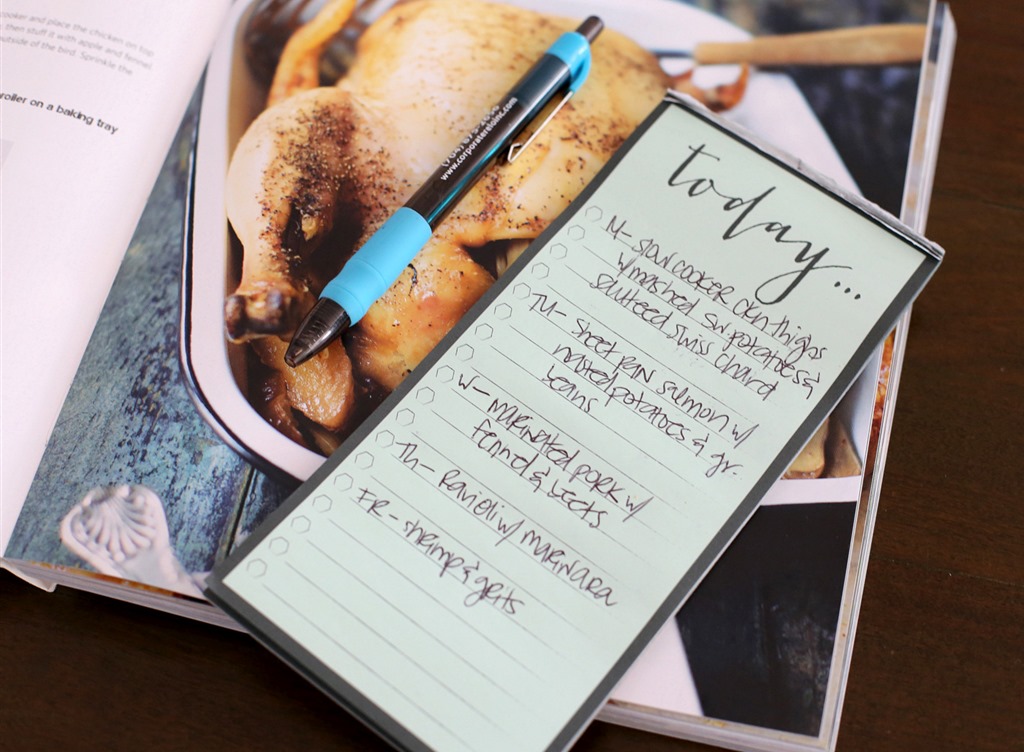 cooker and place the chicken on top
then stuff it with apple and fennel
outside of the bird. Sprinkle the
roiler on a baking tray
www.corporateloinc.com
today...
M- slow cooker ckn thighs
w/ mashed sw potatoes &
sauteed swiss chard
TU- sheet pan salmon w/
roasted potatoes & gr.
beans
W- marinated pork w/
fennel & beets
Th- Ravioli w/ marinara
FR- shrimp & grits